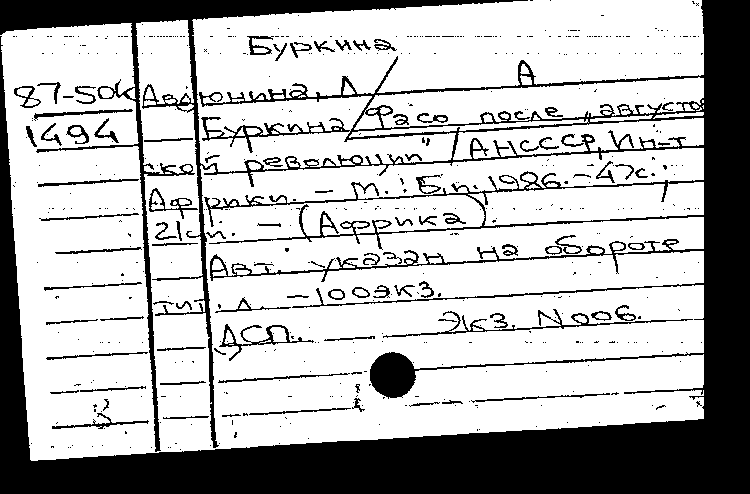 Буркина
87-50к Авдюнина, Л. А
1494 Буркина/Фасо после „августов
ской революции" / АН СССР, Ин-т
Африки. – М.: Б.п., 1986. – 47с.;
21см. – (Африка).
Авт. указан на обороте
тит. л. – 100экз.
ДСП. Экз. N 006.